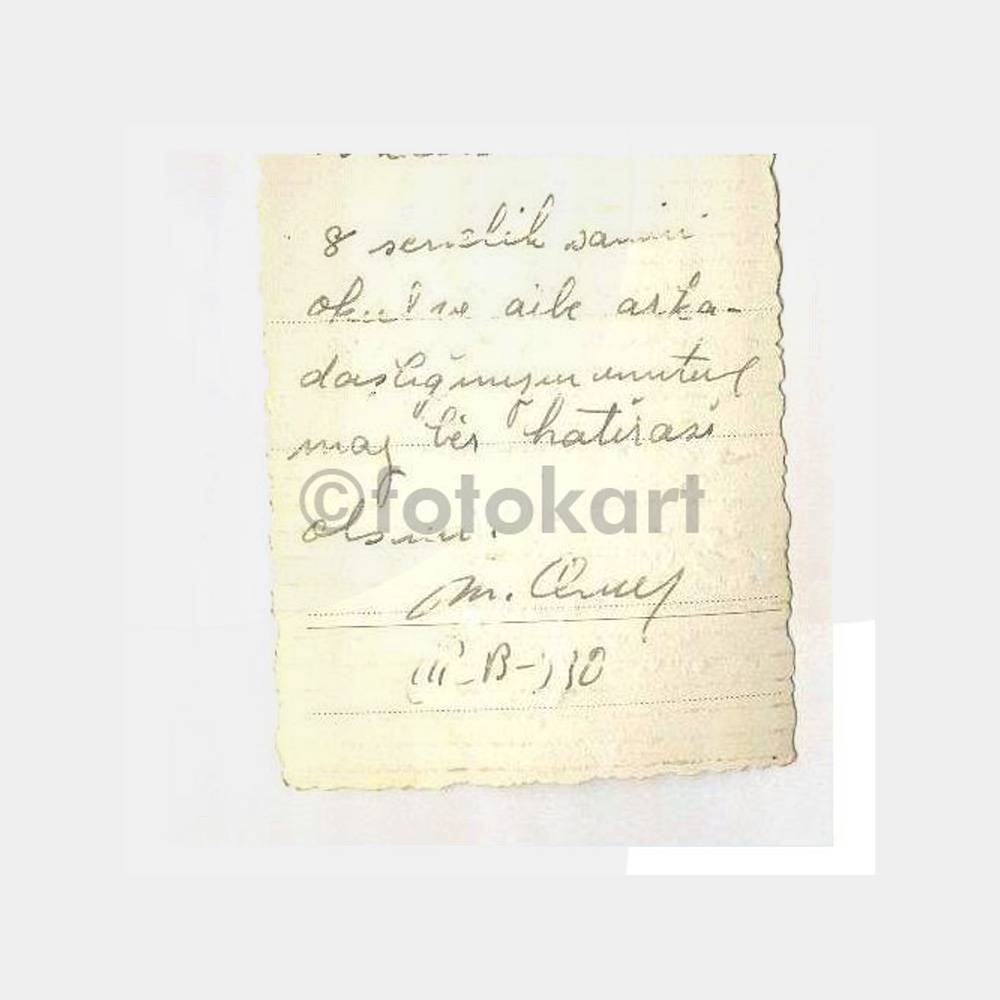 8 senelik samimi
okul ve aile arka-
daşlığımızın unutul
maz bir hatırası
olsun.
©fotokart
M.
(III-B-)